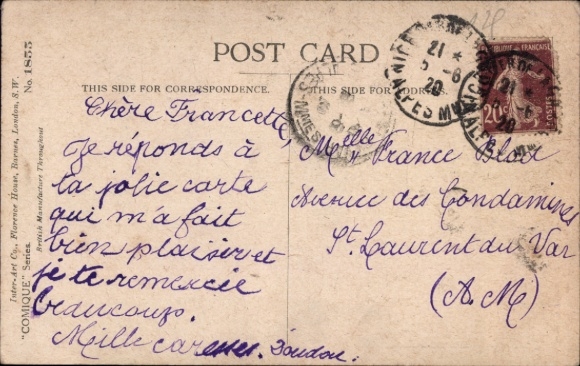 POST CARD
THIS SIDE FOR CORRESPONDENCE.
THIS SIDE FOR ADDRESS.
Inter-Art Co., Florence House, Barnes, London, S.W.
"COMIQUE" Series. No. 1855
British Manufacture Throughout
Chère Francette
Je réponds à
ta jolie carte
qui m'a fait
bien plaisir et
je te remercie
beaucoup.
Mille caresses. Doudou.
Melle France
Avenue des Condamines
St Laurent du Var
(A.M)
NICE
21 *
5-6
20
ALPES Mmes
21
20
20c
POSTES